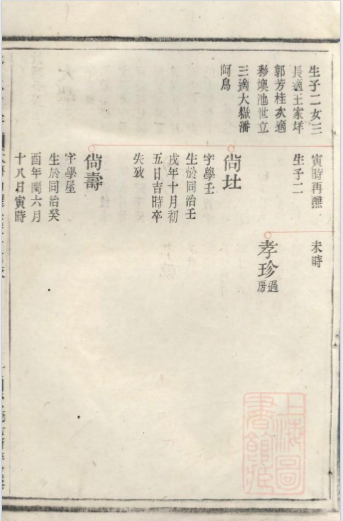 生子二女三
長適王家坪
郭芳桂次適
移墺池世立
三適大嶽潘
阿鳥
寅時再醮
生子二
未時
孝珍過房
尙壯
字學壬
生於同治壬
戌年十月初
五日吉時卒
失攷
尙壽
字學屋
生於同治癸
酉年閏六月
十八日寅時
上海圖書館藏